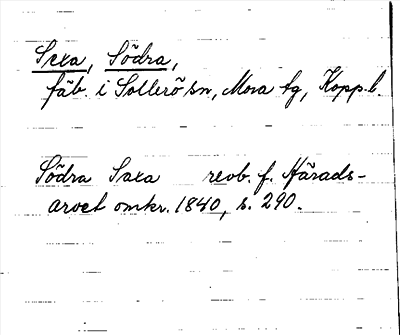 Sexa, Södra,
fäb. i Sollerö sn, Mora tg, Kopp.l.
Södra Saxa revb. f. Härads-
arvet omkr. 1840, s. 290.